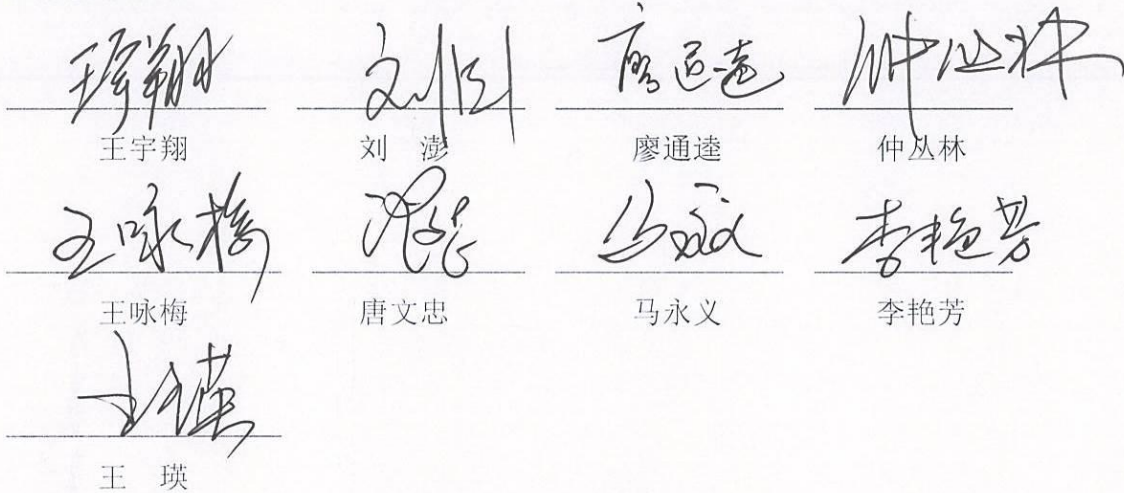 王宇翔 刘 澎 廖通逵 仲丛林
王咏梅 唐文忠 马永义 李艳芳
王 瑛